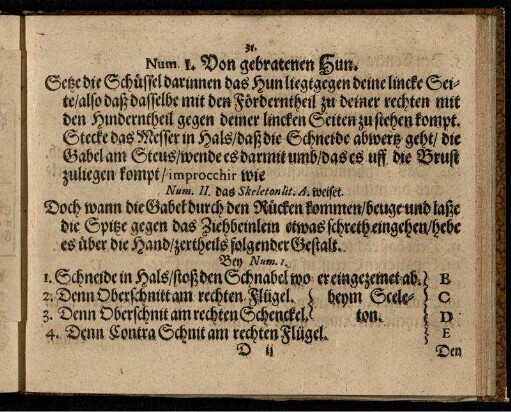 31.
Num. I. Von gebratenen Hun.
Setze die Schüssel darinnen das Hun liegt gegen deine lincke Sei-
te/also daß dasselbe mit den Förderntheil zu deiner rechten mit
den Hinderntheil gegen deiner lincken Seiten zu stehen kompt.
Stecke das Messer in Hals/daß die Schneide abwertz geht/ die
Gabel am Steus/wende es darmit umb/das es uff die Brust
zuliegen kompt/improcchir wie
Num. II. das Skeleton lit. A. weiset.
Doch wann die Gabel durch den Rücken kommen/beuge und laße
die Spitze gegen das Ziehbeinlein etwas schreth eingehen/hebe
es über die Hand/zertheils folgender Gestalt.
Bey Num. 1.
1. Schneide in Hals/stoß den Schnabel wo er eingezeinet ab. } B
2. Denn Oberschnitt am rechten Flügel. } beym Scele- C
3. Denn Oberschnit am rechten Schenckel. } ton. D
4. Denn Contra Schnit am rechten Flügel. E
D ij Den